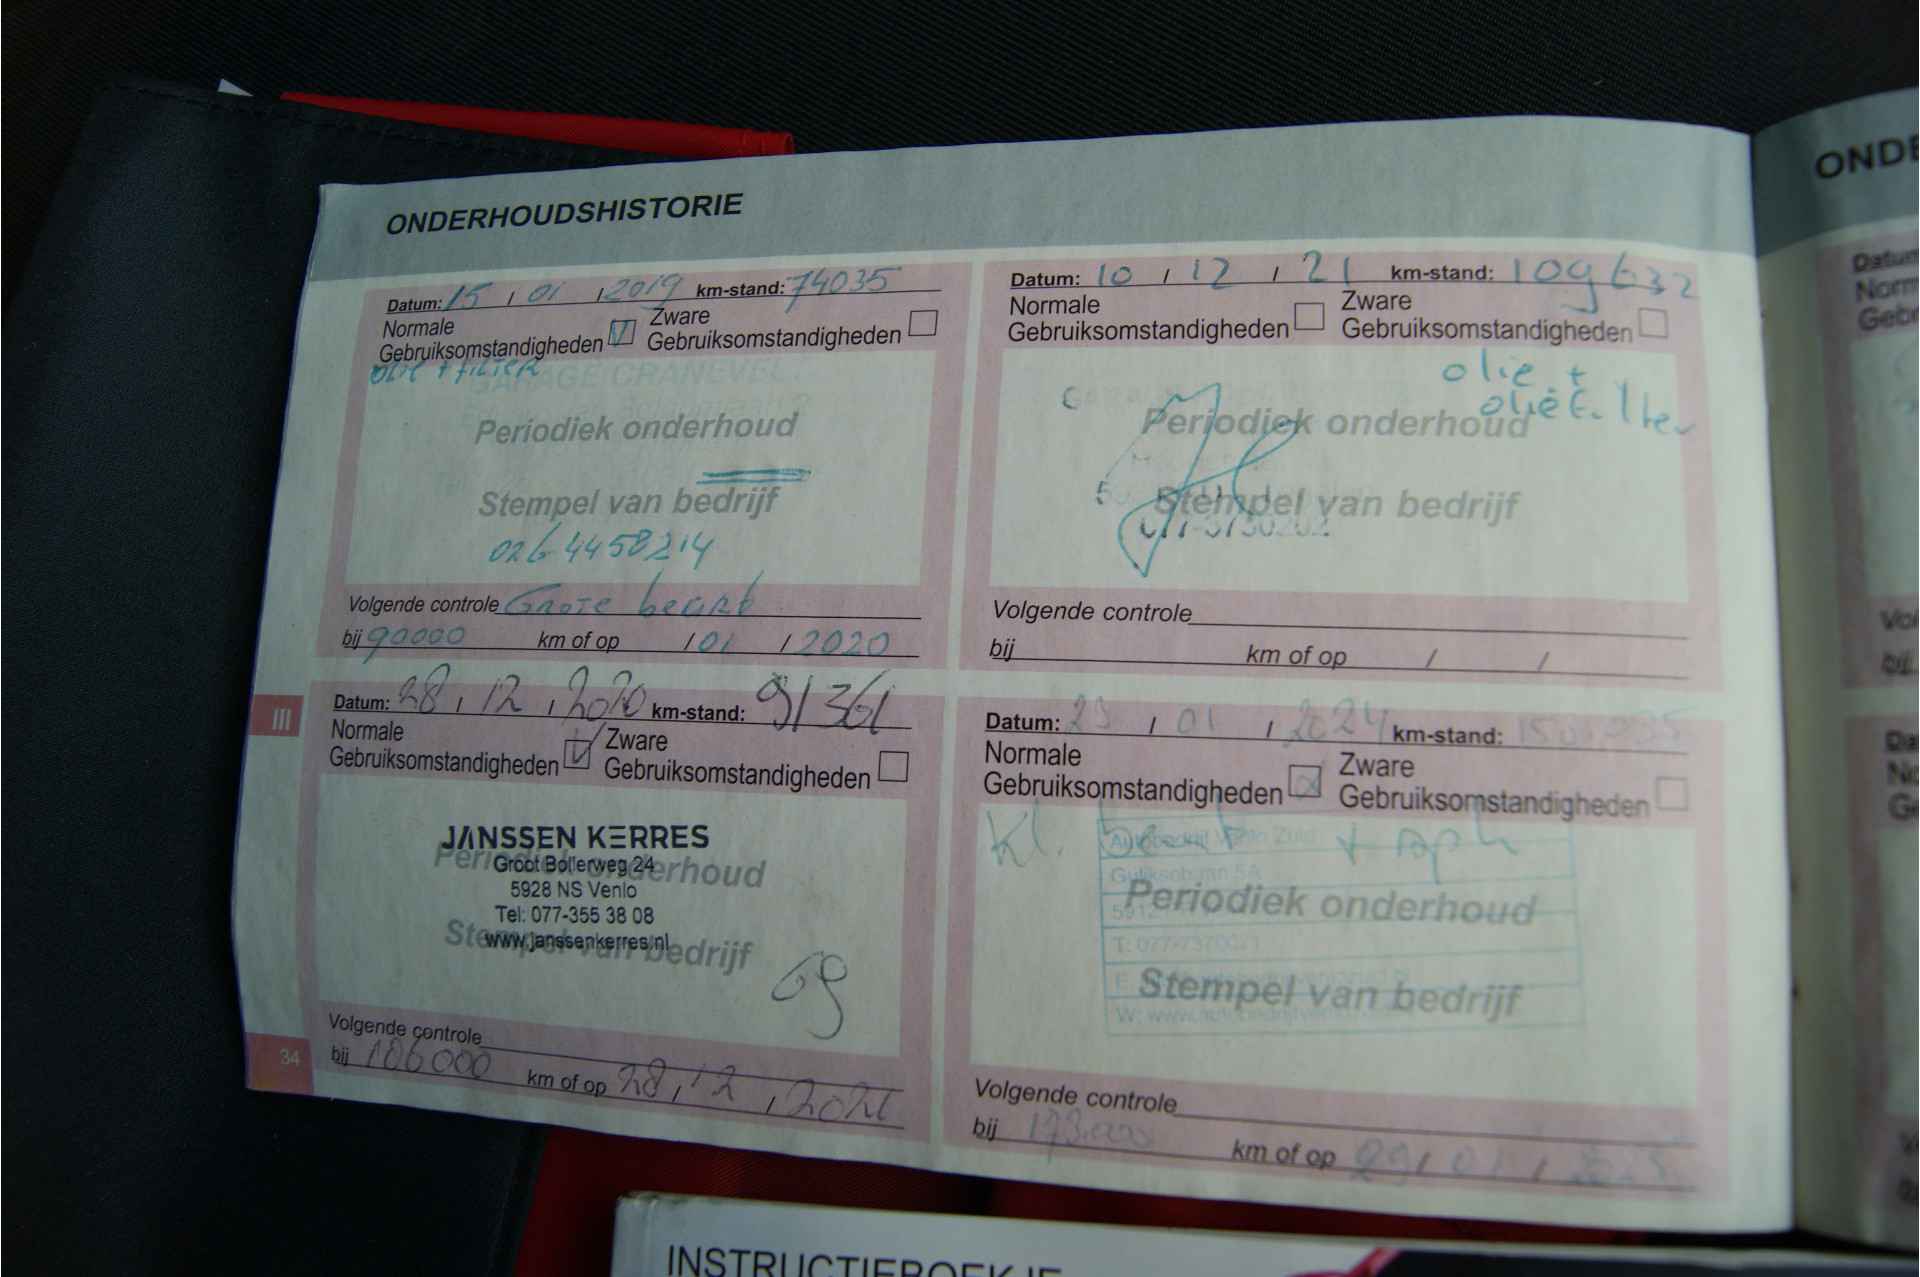 ONDERHOUDSHISTORIE
Datum: 15 / 01 / 2019 km-stand: 74035
Normale
Gebruiksomstandigheden V Zware
Gebruiksomstandigheden
olie + filter
GARAGE CRANEVEL
Periodiek onderhoud
Stempel van bedrijf
026 4458214
Volgende controle Grote beurt
bij 90000 km of op / 01 / 2020
Datum: 10 / 12 / 21 km-stand: 109632
Normale
Gebruiksomstandigheden Zware
Gebruiksomstandigheden
olie +
olie filter
Periodiek onderhoud
Stempel van bedrijf
Volgende controle
bij km of op / /
III
Datum: 28 / 12 / 2020 km-stand: 91361
Normale
Gebruiksomstandigheden V Zware
Gebruiksomstandigheden
JANSSEN KERRES
Periodiek onderhoud
Groot Bollerweg 24
5928 NS Venlo
Tel: 077-355 38 08
Stempel van bedrijf
www.janssenkerres.nl
Volgende controle
bij 106000 km of op 28 / 12 / 2021
34
Datum: 29 / 01 / 2024 km-stand:
Normale
Gebruiksomstandigheden x Zware
Gebruiksomstandigheden
Kl. + apk
Autobedrijf Venlo Zuid
Periodiek onderhoud
Stempel van bedrijf
Volgende controle
bij 173.000 km of op 29 / 01 /
ONDE
Datum
INSTRUCTIEBOEKJE